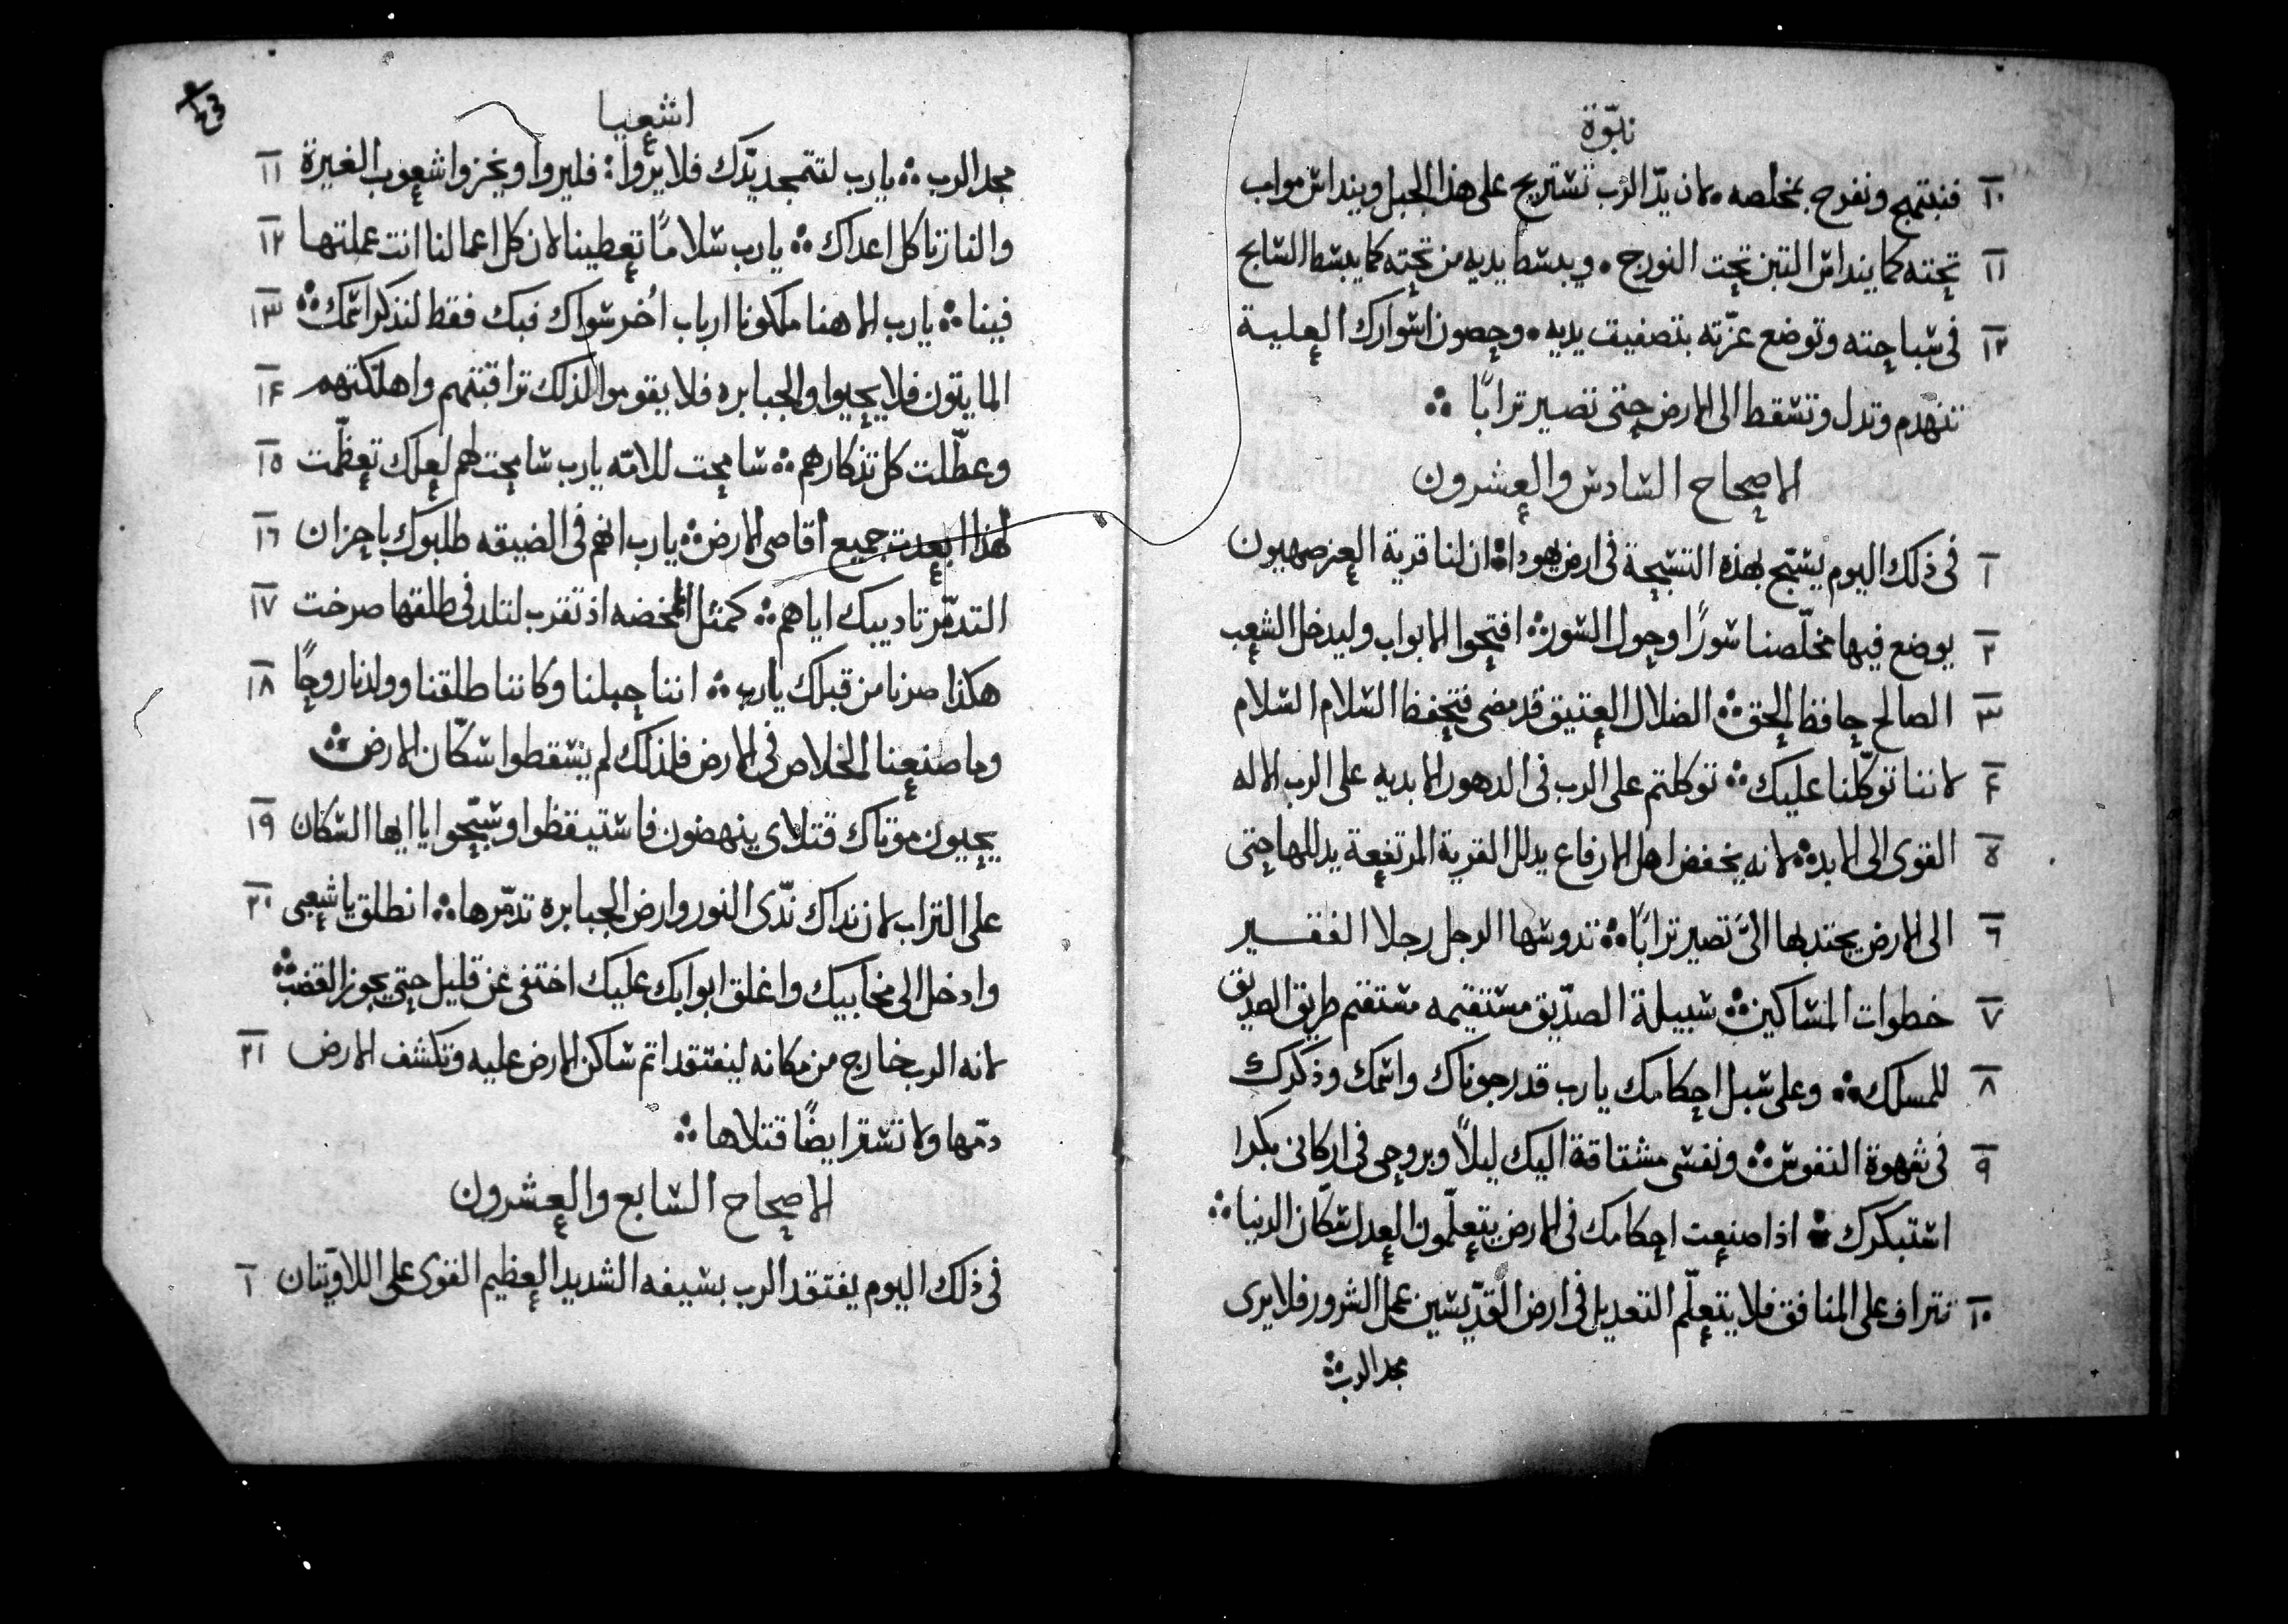 نبوّة
١٠ فنبتهج ونفرح بمخلصه لان يدّ الرب تستريح على هذا الجبل وينداس مواب
١١ تحته كما ينداس التبن تحت النورج . ويبسط يديه من تحته كما يبسط السابح
١٢ فى سباحته وتوضع عزّته بتصفيف يديه . وحصون اسوارك العلية
تنهدم وتدل وتسقط الى الارض حتى تصير ترابًا ؞
الاصحاح السادس والعشرون
١ فى ذلك اليوم يسبّح بهذه التسبحة فى ارض يهودا ؞ ان لنا قرية العز صهيون
٢ يوضع فيها مخلّصنا سورًا وحول السور ؞ افتحوا الابواب وليدخل الشعب
٣ الصالح حافظ الحق ؞ الضلال العتيق قد مضى فتحفظ السلام السلام
٤ لاننا توكّلنا عليك ؞ توكلتم على الرب فى الدهور الابديه على الرب الاله
٥ القوى الى الابد ؞ لانه يخفض اهل الارفاع يدلل القرية المرتفعة يدللها حتى
٦ الى الارض يجتدبها الىَ تصير ترابًا ؞ تدوسها الرجل رجلا الفقير
٧ خطوات المساكين ؞ سبيلة الصدّيق مستقيمه مستقم طريق الصديق
٨ للمسلك ؞ وعلى سبل احكامك يارب قد رجوناك واسمك وذكرك
٩ فى شهوة النفوس ؞ ونفسى مشتاقة اليك ليلاً وبروحى فى اركانى بكرا
استبكرك ؞ اذا صنعت احكامك فى الارض يتعلّمون العدل سكّان الدنيا ؞
١٠ تتراف على المنافق فلا يتعلّم التعديل فى ارض القدّيسين عمل الشرور فلا يرى
مجد الرب ؞
اشعيا
مجد الرب ؞ يارب لتتمجد يدّك فلا يروا : فليروا ويخزوا شعوب الغيرة ١١
والنار تاكل اعداك ؞ يارب سلامًا تعطينا لان كل اعمالنا انت عملتها ١٢
فينا ؞ يارب الاهنا ملكونا ارباب اُخر سواك فبك فقط لنذكر اسمك ؞ ١٣
المايتون فلا يحيوا والجبابره فلا يقوموا لذلك تراقبتهم واهلكتهم ١٤
وعطّلت كل تذكارهم ؞ سامحت للامّه يارب سامحت لهم لعلك تعظّمت ١٥
لهذا ابعدت جميع اقاصى الارض ؞ يارب انهم فى الضيقه طلبوك باحزان ١٦
التدمّر تاديبك اياهم ؞ كمثل المخضه اذ تقرب لتلد فى طلقها صرخت ١٧
هكذا صرنا من قبلك يارب ؞ اننا حبلنا وكاننا طلقنا وولدنا روحًا ١٨
وما صنعنا الخلاص فى الارض فلذلك لم يسقطوا سكّان الارض ؞
يحيون موتاك قتلاى ينهضون فاستيقظوا وسبّحوا يا ايها السكان ١٩
على التراب لان نداك ندّى النور وارض الجبابره تدمّرها ؞ انطلق يا شعبى ٢٠
وادخل الى مخابيك واغلق ابوابك عليك اختفى عن قليل حتى يجوز الغضب ؞
لانه الرب خارج من مكانه ليفتقد اثم ساكن الارض عليه وتكشف الارض ٢١
دمّها ولا تستر ايضًا قتلاها ؞
الاصحاح السابع والعشرون
فى ذلك اليوم يفتقد الرب بسيفه الشديد العظيم القوى على اللاويتان ١